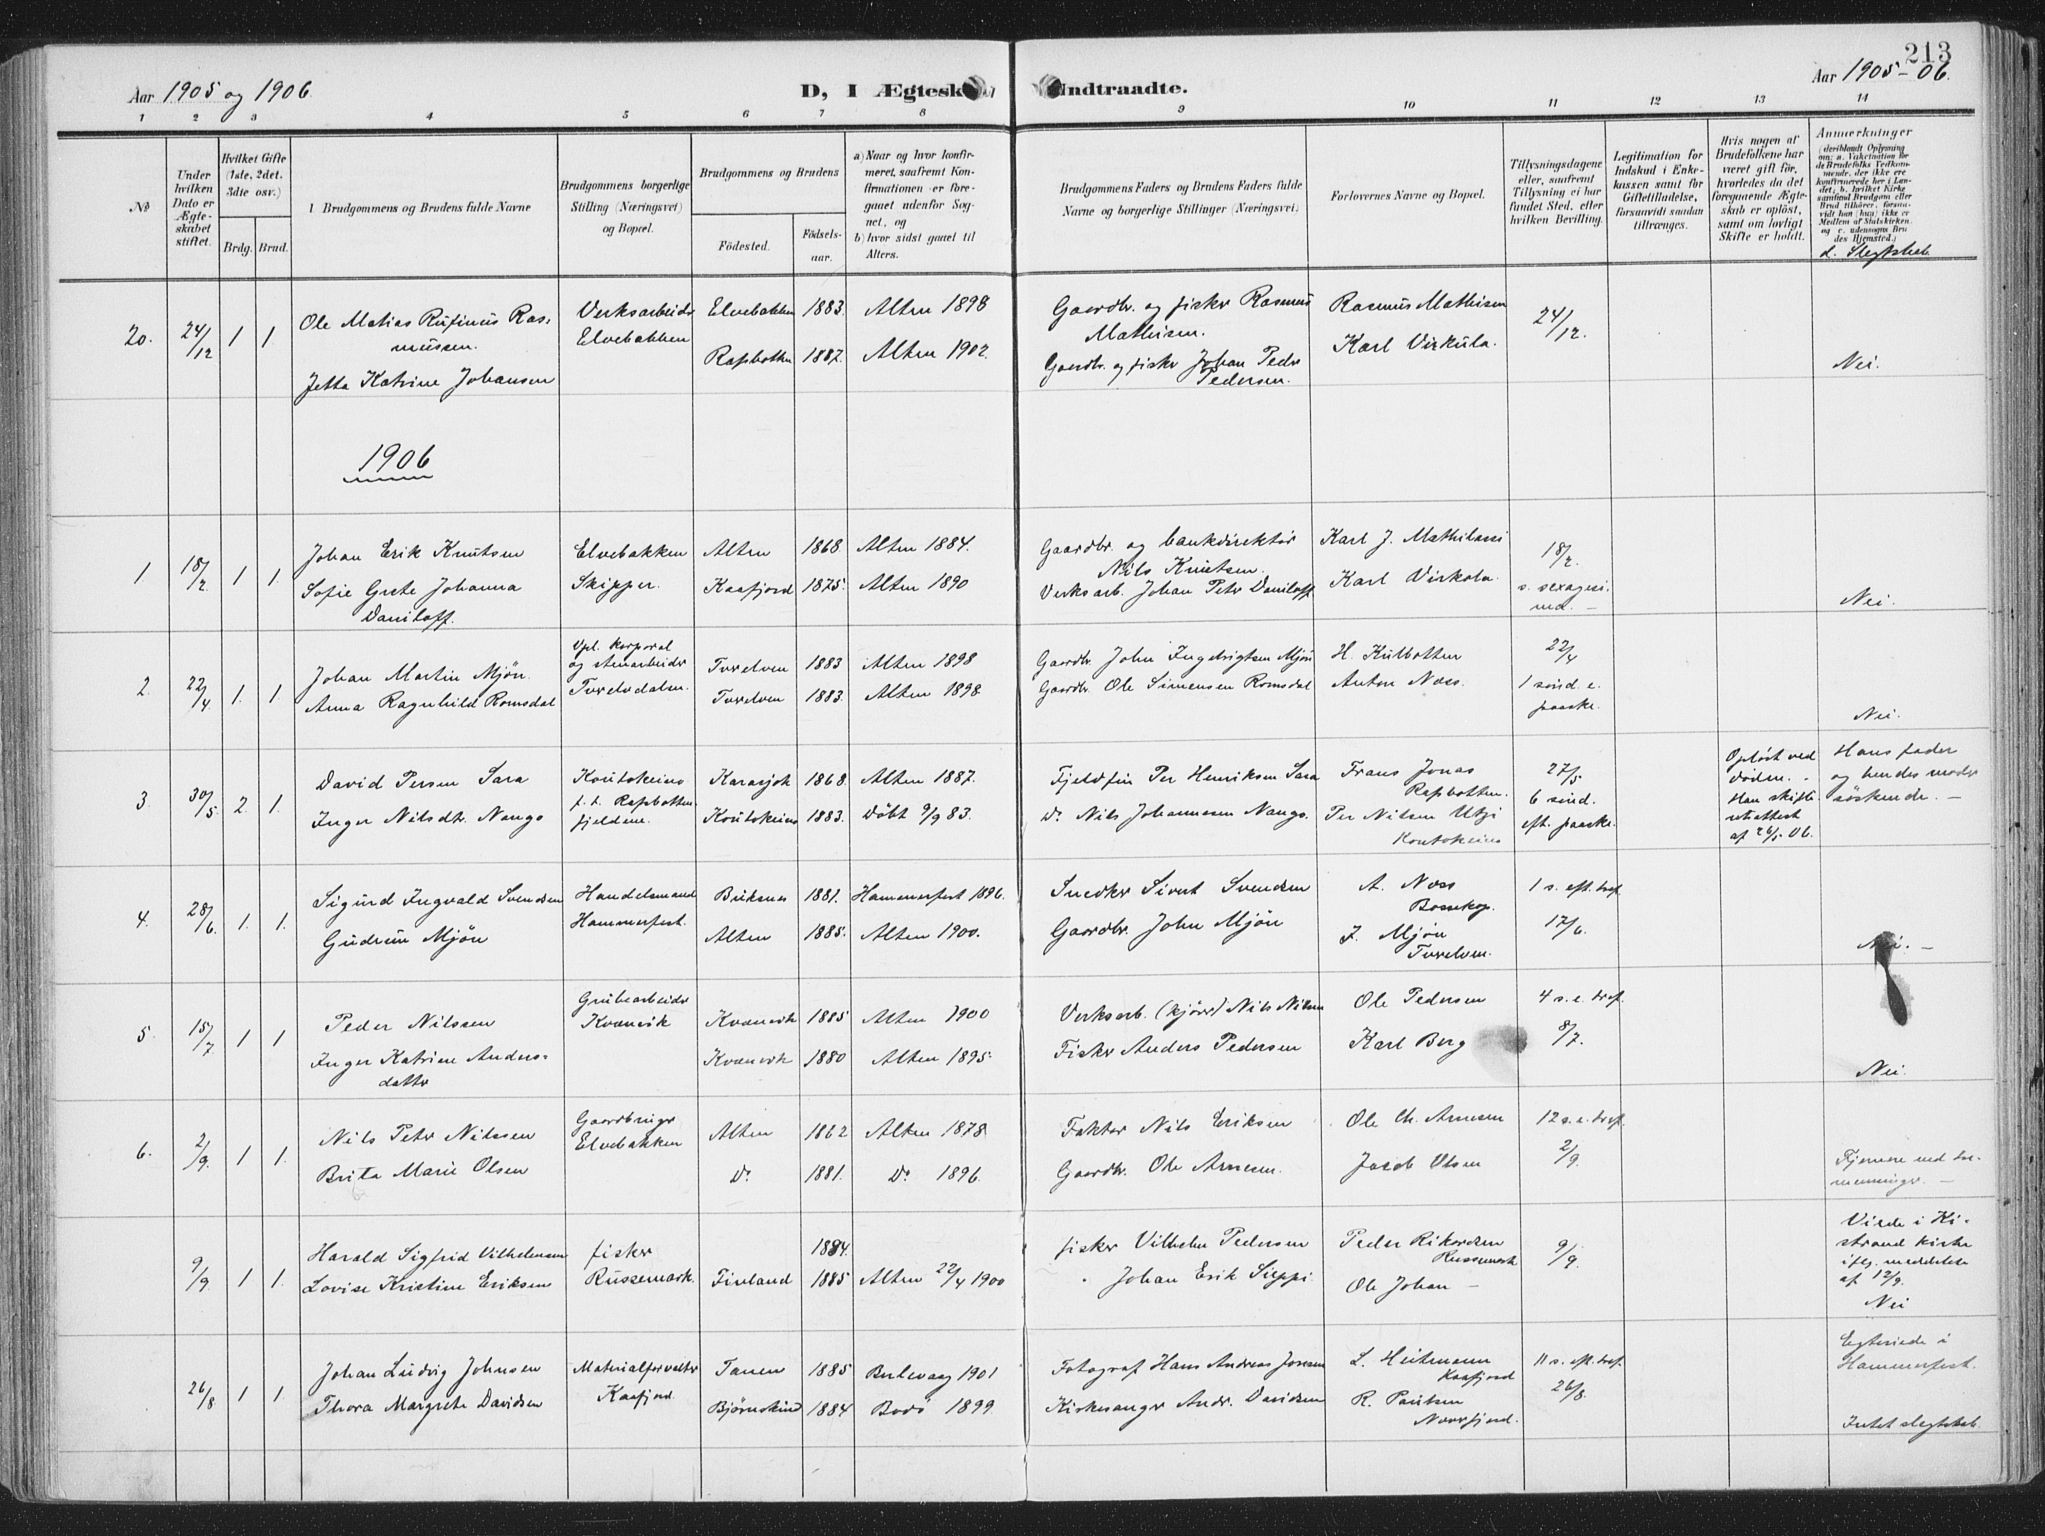 213
Aar 1905 og 1906
D, I Ægtesk
Indtraadte.
Aar 1905-06.
1 2 3 4 5 6 7 8 9 10 11 12 13 14
No
Under hvilken Dato er Ægteskabet stiftet.
Hvilket Gifte (1ste, 2det. 3dte osv.)
Brdg. Brud.
1 Brudgommens og Brudens fulde Navne
Brudgommens borgerlige Stilling (Næringsvei) og Bopæl.
Brudgommens og Brudens
Födested.
Födselsaar.
a) Naar og hvor konfirmeret, saafremt Konfirmationen er foregaaet udenfor Sognet, og
b) hvor sidst gaaet til Alters.
Brudgommens Faders og Brudens Faders fulde Navne og borgerlige Stillinger (Næringsvei)
Forlovernes Navne og Bopæl.
Tillysningsdagene eller, saafremt Tillysning ei har fundet Sted, efter hvilken Bevilling.
Legitimation for Indskud i Enkekassen samt for Giftetilladelse, forsaavidt saadan tiltrænges.
Hvis nogen af Brudefolkene har været gift för, hvorledes da det foregaaende Ægteskab er oplöst, samt om lovligt Skifte er holdt.
Anmerkninger
(deriblandt Oplysning om: a. Vakcination for de Brudefolks Vedkommende, der ikke ere konfirmerede her i Landet; b. hvilket Kirkesamfund Brudgom eller Brud tilhörer, forsaavidt han (hun) ikke er Medlem af Statskirken. og c. udensogns Brudes Hjemsted.)
d. Slegtskab
20. 24/12 1 1
Ole Matias Rufinus Rasmussen.
Jetta Katrine Johansen
Verksarbeider
Elvebakken
Elvebakken 1883. Alten 1898
Rafsbotten 1887. Alten 1902.
Gaardbr. og fisker Rasmus Mathisen.
Gaardbr. og fisker Johan Peder Pedersen.
Rasmus Mathisen
Karl Virkula.
24/12.
Nei.
1906
1 18/2. 1 1.
Johan Erik Knutsen
Sofie Grete Johanna Daniloff.
Elvebakken
Skipper.
Alten 1868. Alten 1884.
Kaafjord 1875. Alten 1890
Gaardbr. og bankdirektör Nils Knutsen.
Verksarb. Johan Petr Daniloff
Karl J. Mathilassi
Karl Virkola.
18/2.
s. sexagesima. -
Nei.
2. 22/4. 1. 1.
Johan Martin Mjön.
Anna Ragnhild Romsdal
Vpl. korporal
og stenarbeider
Tverelvdalen.
Tverelven 1883 Alten 1898
Tverelven 1883. Alten 1898.
Gaardbr. John Ingebrigtsen Mjön
Gaardbr. Ole Simensen Romsdal
H. Kulbotten
Anton Næss.
22/4
1 sönd. e. paaske.
Nei.
3. 30/5. 2. 1.
David Persen Sara
Inger Nilsdtr. Nango
Koutokeino
f. t. Rafsbotten
fjeldene.
Karasjok 1868. Alten 1887.
Koutokeino 1883. Döbt 9/9 83.
Fjeldfin Per Henriksen Sara
Do. Nils Johannesen Nango.
Frans Jonas
Rafsbotten.
Per Nilsen Utsi
Koutokeino
27/5
6 sönd.
eft. paaske.
Oplöst ved döden. -
Han skifteattest
af 26/5 06.
Hans fader og hendes moder söskende. -
4. 28/6. 1. 1.
Sigurd Ingvald Svendsen
Gudrun Mjön
Handelsmand
Hammerfest.
Buksnes 1881. Hammerfest 1896.
Alten 1885. Alten 1900.
Snedker Sivert Svendsen
Gaardbr. John Mjön
A. Næss
Bossekop.
J. Mjön
Tverelven.
1 s. eft. tref.
17/6.
Nei. -
5. 15/7 1 1
Peder Nilssen
Inger Katrine Andersdatter
Grubearbeider
Kvænvik
Kvænvik 1885 Alten 1900
Kvænvik 1880 Alten 1895.
Verksarb. (kjörer) Nils Nilsen
Fisker Anders Pedersen
Ole Pedersen
Karl Berg
4 s. e. tref.
8/7.
Nei.
6. 2/9. 1 1.
Nils Peter Nilssen
Brita Marie Olsen
Gaardbruger
Elvebakken
Alten 1862 Alten 1878.
Do. 1881. Do. 1896.
Faktor Nils Eriksen
Gaardbr. Ole Arnesen.
Ole Ch. Arnesen
Jacob Olsen
12 s. e. tref.
2/9.
Fjernere end tremenninger. -
9/9 1 1.
Harald Sigfrid Vilhelmsen
Lovise Kristine Eriksen
fisker
Russemark.
1884.
Finland 1885 Alten 22/4 1900
fisker Vilhelm Pedersen
" Johan Erik Sieppi.
Peder Rikardsen
Russemark
Ole Johan -
9/9.
Viede i Kistrand kirke ifög. meddelelse af 12/9.
Nei
26/8 1 1
Johan Ludvig Johnsen
Thora Margrete Davidsen
Materialforvalter
Kaafjord
Tanen 1885 Berlevaag 1901
Björnskind 1884 Bodö 1899.
Fotograf Hans Andreas Jonsen
Kirkesanger Andr. Davidsen
L. Heitmann
Kaafjord
R. Paulsen
11 s. eft. tref.
26/8.
Egteviede i Hammerfest.
Intet slegtskab.